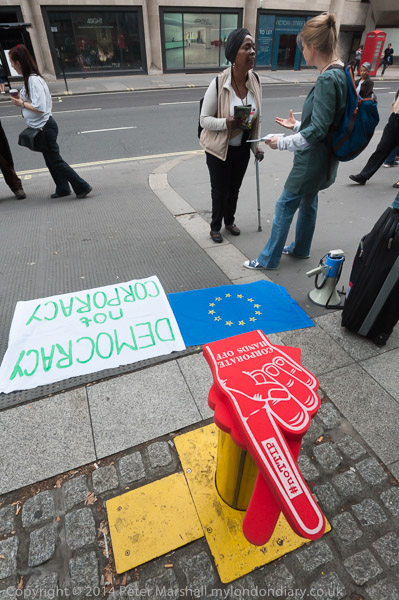 DEMOCRACY
not
CORPORACY
CORPORATE
HANDS OFF
#noTTIP
Copyright © 2014 Peter Marshall mylondondiary.co.uk